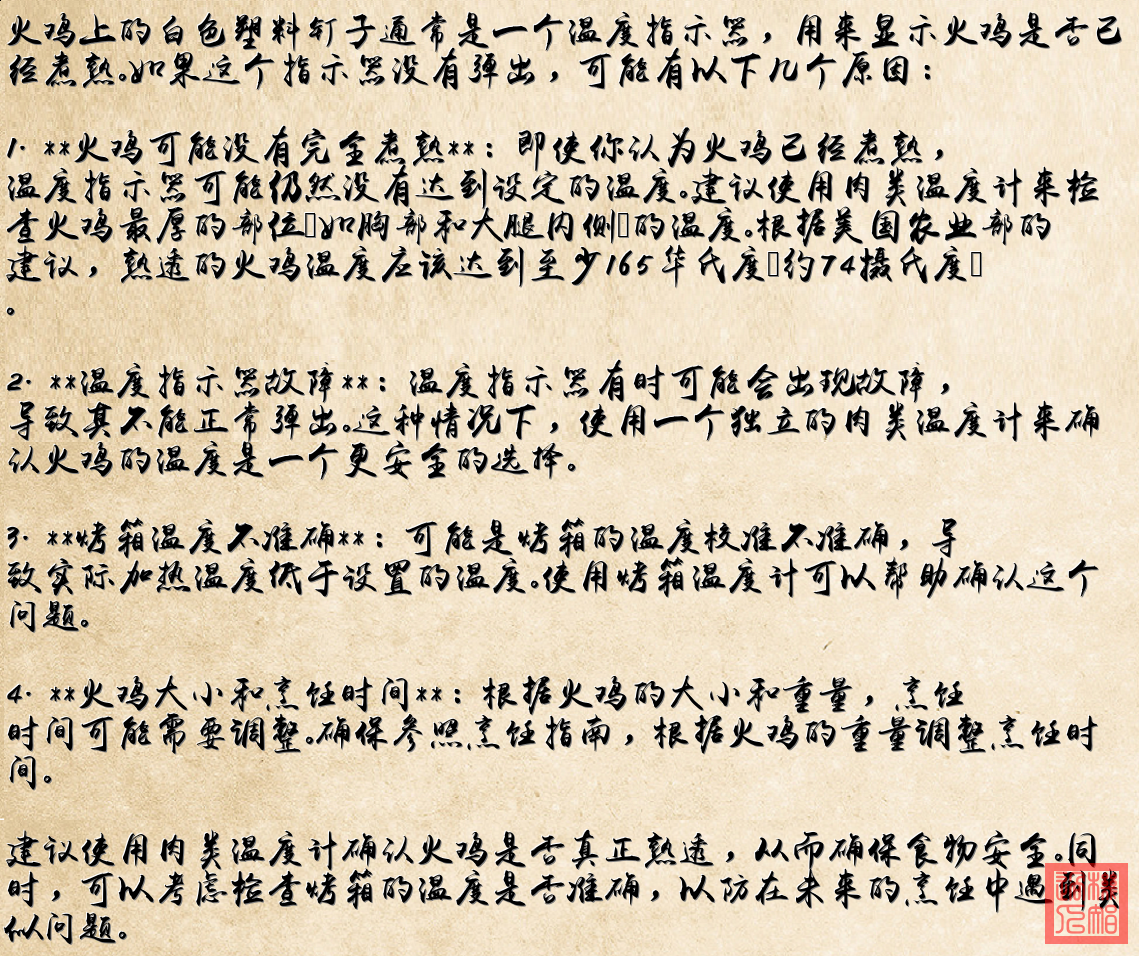 火鸡上的白色塑料钉子通常是一个温度指示器，用来显示火鸡是否已
经煮熟。如果这个指示器没有弹出，可能有以下几个原因：
1. **火鸡可能没有完全煮熟**：即使你认为火鸡已经煮熟，
温度指示器可能仍然没有达到设定的温度。建议使用肉类温度计来检
查火鸡最厚的部位▯如胸部和大腿内侧▯的温度。根据美国农业部的
建议，熟透的火鸡温度应该达到至少165华氏度▯约74摄氏度▯
。
2. **温度指示器故障**：温度指示器有时可能会出现故障，
导致其不能正常弹出。这种情况下，使用一个独立的肉类温度计来确
认火鸡的温度是一个更安全的选择。
3. **烤箱温度不准确**：可能是烤箱的温度校准不准确，导
致实际加热温度低于设置的温度。使用烤箱温度计可以帮助确认这个
问题。
4. **火鸡大小和烹饪时间**：根据火鸡的大小和重量，烹饪
时间可能需要调整。确保参照烹饪指南，根据火鸡的重量调整烹饪时
间。
建议使用肉类温度计确认火鸡是否真正熟透，从而确保食物安全。同
时，可以考虑检查烤箱的温度是否准确，以防在未来的烹饪中遇到类
似问题。